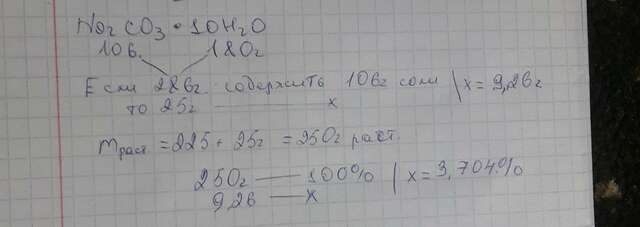 Na2CO3 • 10H2O
106. 180г
Если 286г. содержить 106г соли | x = 9,26г
то 25г —— x
mраст. = 225 + 25г = 250г раст.
250г —— 100% | x = 3,704%
9,26 —— x